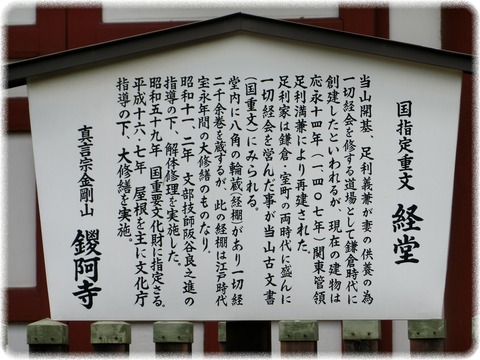 国指定重文 経堂
当山開基、足利義兼が妻の供養の為
一切経会を修する道場として鎌倉時代に
創建したといわれるが、現在の建物は
応永十四年(一、四〇七年)関東管領
足利満兼により再建された。
足利家は鎌倉・室町の両時代に盛んに
一切経会を営んだ事が当山古文書
(国重文)にみられる。
堂内に八角の輪蔵(経棚)があり一切経
二千余巻を蔵するが、此の経棚は江戸時代
宝永年間の大修繕のものなり。
昭和十一、二年 文部技師阪谷良之進の
指導の下、解体修理を実施した。
昭和五十九年 国重要文化財に指定さる。
平成十六、七年 屋根を主に文化庁
指導の下、大修繕を実施。
真言宗金剛山 鑁阿寺